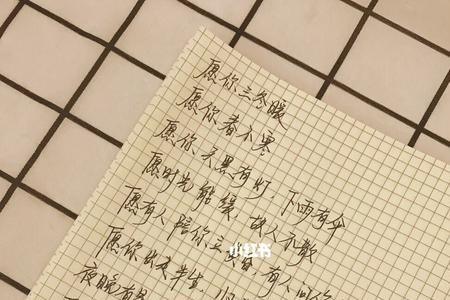 愿你三冬暖
愿你春不寒
愿你天黑有灯，下雨有伞
愿时光能缓，故人不散
愿有人陪你立黄昏，有人问你
愿你出走半生，归
夜晚有
小红书